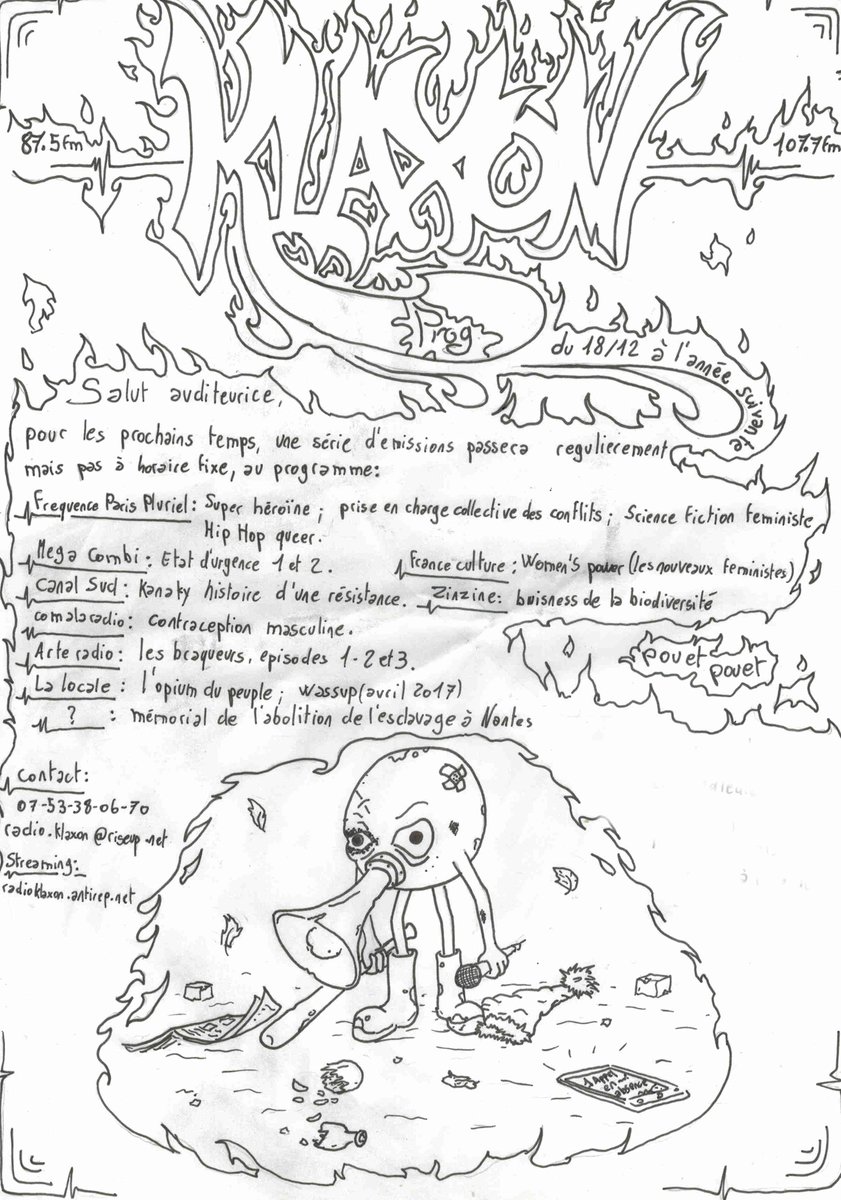 KLAXON
87.5 fm
107.7 fm
Prog
du 18/12 à l'année suivante
Salut auditeurice,
pour les prochains temps, une série d'emissions passera regulierement
mais pas à horaire fixe, au programme:
Frequence Paris Pluriel: Super héroïne ; prise en charge collective des conflits ; Science Fiction feministe
Hip Hop queer.
Mega Combi: Etat d'urgence 1 et 2. France culture: Women's power (les nouveaux feministes)
Canal Sud: Kanaky histoire d'une résistance. Zinzine: buisness de la biodiversité
comalaradio: contraception masculine.
Arte radio: les braqueurs, episodes 1-2 et 3.
La locale: l'opium du peuple ; Wassup (avril 2017)
? : mémorial de l'abolition de l'esclavage à Nantes
pouet
pouet
Contact:
07-53-38-06-70
radio.klaxon@riseup.net
Streaming:
radioklaxon.antirep.net
1 Appel
en
absence